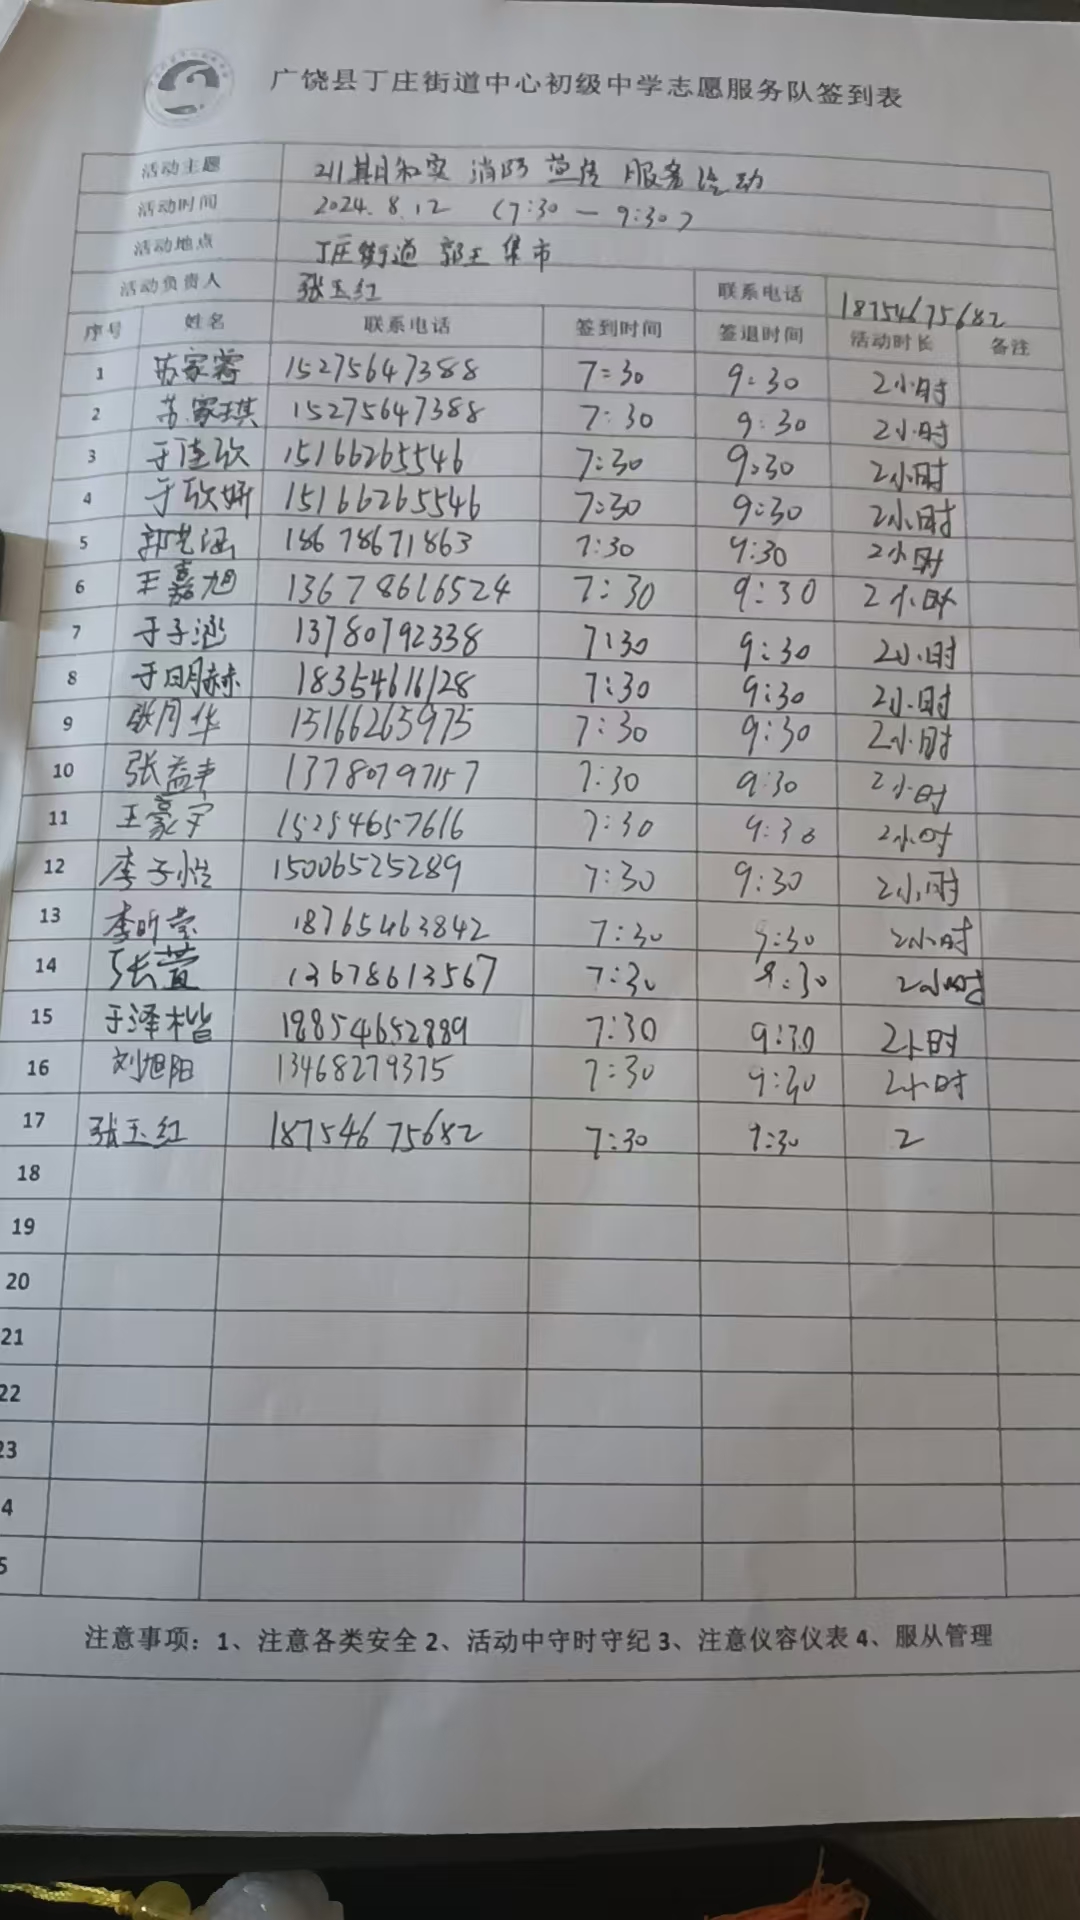 广饶县丁庄街道中心初级中学志愿服务队签到表
活动主题 211期 消防宣传 服务活动
活动时间 2024.8.12 (7:30-9:30)
活动地点 丁庄街道 郭王集市
活动负责人 张玉红 联系电话 18754675682
序号 姓名 联系电话 签到时间 签退时间 活动时长 备注
1 苏家 15275647388 7:30 9:30 2小时
2 苏家琪 15275647388 7:30 9:30 2小时
3 于佳欣 15166265546 7:30 9:30 2小时
4 于欣妍 15166265546 7:30 9:30 2小时
5 郭艺涵 18678671863 7:30 9:30 2小时
6 王嘉旭 13678616524 7:30 9:30 2小时
7 于子涵 13780792338 7:30 9:30 2小时
8 于明赫 18354616128 7:30 9:30 2小时
9 张月华 15166265975 7:30 9:30 2小时
10 张益 13780797157 7:30 9:30 2小时
11 王豪宇 15254657616 7:30 9:30 2小时
12 李子悦 15006525289 7:30 9:30 2小时
13 李昕莹 18765463842 7:30 9:30 2小时
14 张萱 13678613567 7:30 9:30 2小时
15 于泽楷 18854652889 7:30 9:30 2小时
16 刘旭阳 13468279375 7:30 9:30 2小时
17 张玉红 18754675682 7:30 9:30 2
18
19
20
21
22
23
4
5
注意事项：1、注意各类安全 2、活动中守时守纪 3、注意仪容仪表 4、服从管理